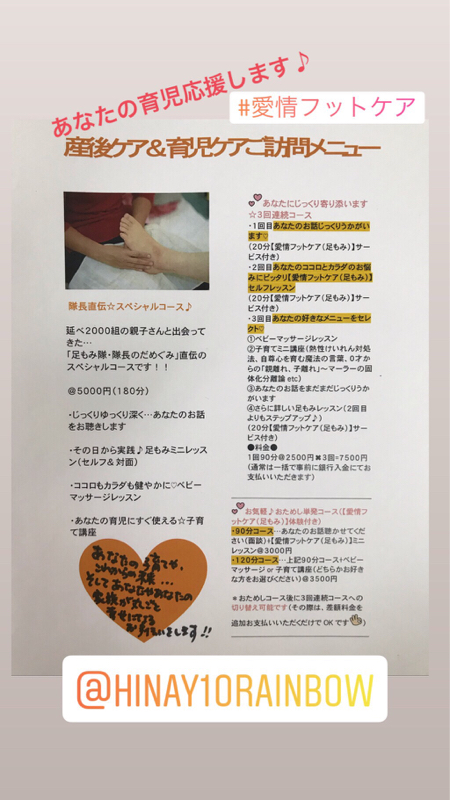 あなたの育児応援します♪
#愛情フットケア
産後ケア＆育児ケアご訪問メニュー
隊長直伝☆スペシャルコース♪
延べ2000組の親子さんと出会って
きた…
「足もみ隊・隊長のだめぐみ」直伝の
スペシャルコースです！！
@5000円（180分）
・じっくりゆっくり深く…あなたのお話
をお聴きします
・その日から実践♪足もみミニレッス
ン（セルフ＆対面）
・ココロもカラダも健やかに♡ベビー
マッサージレッスン
・あなたの育児にすぐ使える☆子育
て講座
あなたの子育てが、
これからの未来…
そしてあなたやあなたの
家族が丸ごと
幸せになる
お手伝いをします!!
あなたにじっくり寄り添います
☆3回連続コース
・1回目あなたのお話じっくりうかがい
ます♡
（20分【愛情フットケア（足もみ）】サー
ビス付き）
・2回目あなたのココロとカラダのお悩
みにピッタリ【愛情フットケア（足もみ）】
セルフレッスン
（20分【愛情フットケア（足もみ）】サー
ビス付き）
・3回目あなたの好きなメニューをセレ
クト♡
①ベビーマッサージレッスン
②子育てミニ講座（熱性けいれん対処
法、自尊心を育む魔法の言葉、0才から
の「親離れ、子離れ」～マーラーの固
体化分離論 etc）
③あなたのお話をまだまだじっくりうか
がいます
④さらに詳しい足もみレッスン（2回目
よりもステップアップ♪）
（20分【愛情フットケア（足もみ）】サー
ビス付き）
●料金●
1回90分@2500円✖3回=7500円
（通常は一括で事前に銀行入金にてお
支払いいただきます）
お気軽♪おためし単発コース（【愛情フ
ットケア（足もみ）】体験付き）
・90分コース…あなたのお話聴かせてくだ
さい（面談）+【愛情フットケア（足もみ）】ミニ
レッスン@3000円
・120分コース…上記90分コース+ベビー
マッサージ or 子育て講座（どちらかお好き
な方をお選びください）@3500円
＊おためしコース後に3回連続コースへの
切り替え可能です（その際は、差額料金を
追加お支払いいただくだけで OK です）
@HINAY10RAINBOW